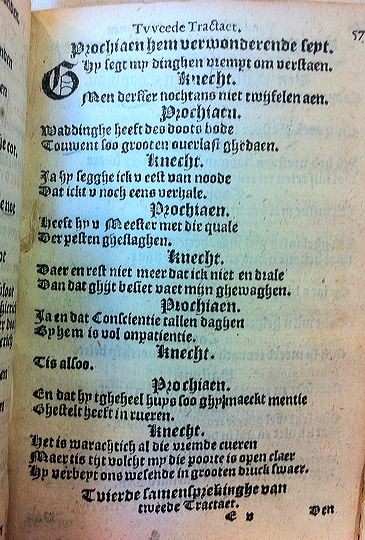 Tvveede Tractaet.
57
Prochiaen hem verwonderende sept.
GHy segt my dinghen vremt om verstaen.
Knecht.
Men derffer nochtans niet twijfelen aen.
Prochiaen.
Wat dinghe heeft des doots bode
Touwent soo grooten overlast ghedaen.
Knecht.
Ja hy segghe ick v eest van noode
Dat ickt v noch eens verhale.
Prochiaen.
Heeft hy v Meester met die quale
Der pesten gheslaghen.
Knecht.
Daer en rest niet meer dat ick niet en drale
Dan dat ghijt besiet vaet mijn ghewaghen.
Prochiaen.
Ja en dat Conscientie tallen daghen
By hem is vol onpatientie.
Knecht.
Tis alsoo.
Prochiaen.
En dat hy tgheheel huys soo ghy maeckt mentie
Ghestelt heeft in rueren.
Knecht.
Het is warachtich al die vremde cueren
Maer tis tijt volcht my die poorte is open claer
Hy verbeyt ons wesende in grooten druck swaer.
Tvierde samensprekinghe van
tweede Tractaet.
E v
Den